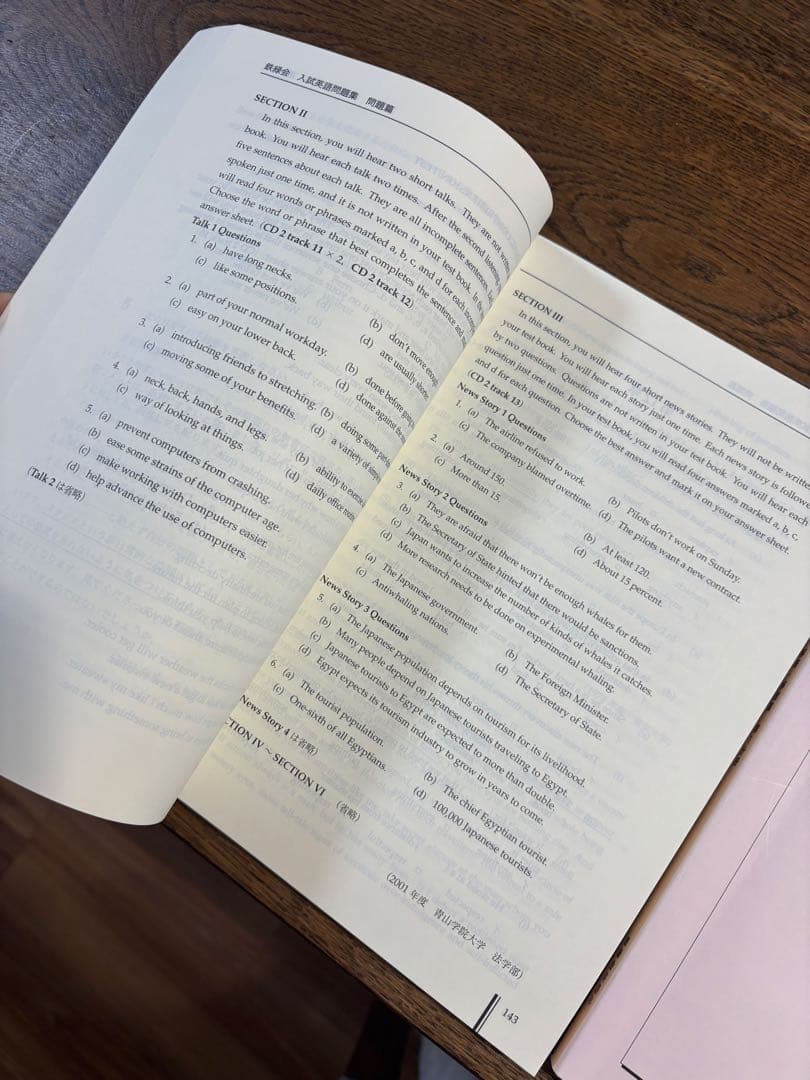 鉄緑会 入試英語問題集 問題篇
SECTION II
In this section, you will hear two short talks. They are not
book. You will hear each talk two times. After the second
five sentences about each talk. They are all incomplete sentences.
spoken just one time, and it is not written in your test book. In
will read four words or phrases marked a, b, c, and d for each
Choose the word or phrase that best completes the sentence and
answer sheet. (CD 2 track 11 × 2, CD 2 track 12)
Talk 1 Questions
1. (a) have long necks. (b) don't move
(c) like some positions. (d) are usually
2. (a) part of your normal workday. (b) done before
(c) easy on your lower back. (d) done against
3. (a) introducing friends to stretching. (b) doing some
(c) moving some of your benefits. (d) a variety of
4. (a) neck, back, hands, and legs. (b) ability to
(c) way of looking at things. (d) daily office
5. (a) prevent computers from crashing.
(b) ease some strains of the computer age.
(c) make working with computers easier.
(d) help advance the use of computers.
(Talk 2 は省略)
SECTION III
In this section, you will hear four short news stories. They will not be
your test book. You will hear each story just one time. Each news story is
by two questions. Questions are not written in your test book. You will hear each
question just one time. In your test book, you will read four answers marked a, b, c,
and d for each question. Choose the best answer and mark it on your answer sheet.
(CD 2 track 13)
News Story 1 Questions
1. (a) The airline refused to work. (b) Pilots don't work on Sunday.
(c) The company blamed overtime. (d) The pilots want a new contract.
2. (a) Around 150. (b) At least 120.
(c) More than 15. (d) About 15 percent.
News Story 2 Questions
3. (a) They are afraid that there won't be enough whales for them.
(b) The Secretary of State hinted that there would be sanctions.
(c) Japan wants to increase the number of kinds of whales it catches.
(d) More research needs to be done on experimental whaling.
4. (a) The Japanese government. (b) The Foreign Minister.
(c) Antiwhaling nations. (d) The Secretary of State.
News Story 3 Questions
5. (a) The Japanese population depends on tourism for its livelihood.
(b) Many people depend on Japanese tourists traveling to Egypt.
(c) Japanese tourists to Egypt are expected to more than double.
(d) Egypt expects its tourism industry to grow in years to come.
6. (a) The tourist population. (b) The chief Egyptian tourist.
(c) One-sixth of all Egyptians. (d) 100,000 Japanese tourists.
News Story 4 は省略)
CTION IV ～ SECTION VI (省略)
(2001 年度 青山学院大学 法学部)
143